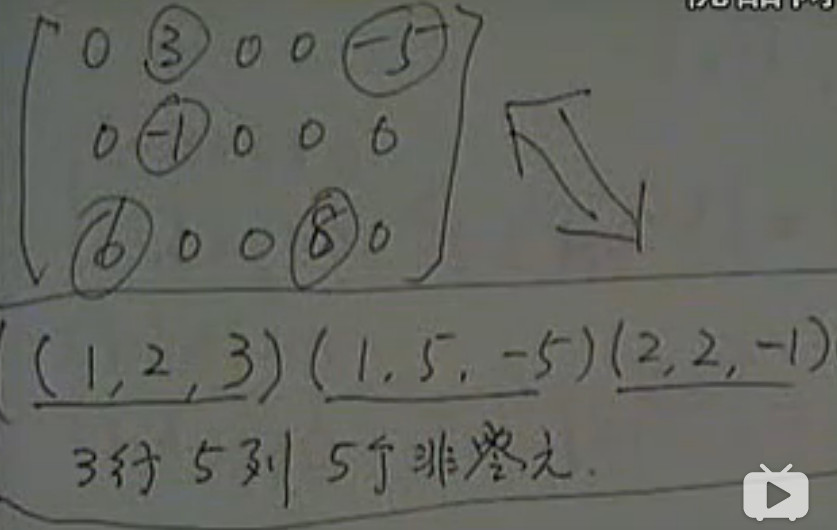 0 3 0 0 -5
0 -1 0 0 0
6 0 0 8 0
((1,2,3)(1,5,-5)(2,2,-1)
3行 5列 5个非零元.